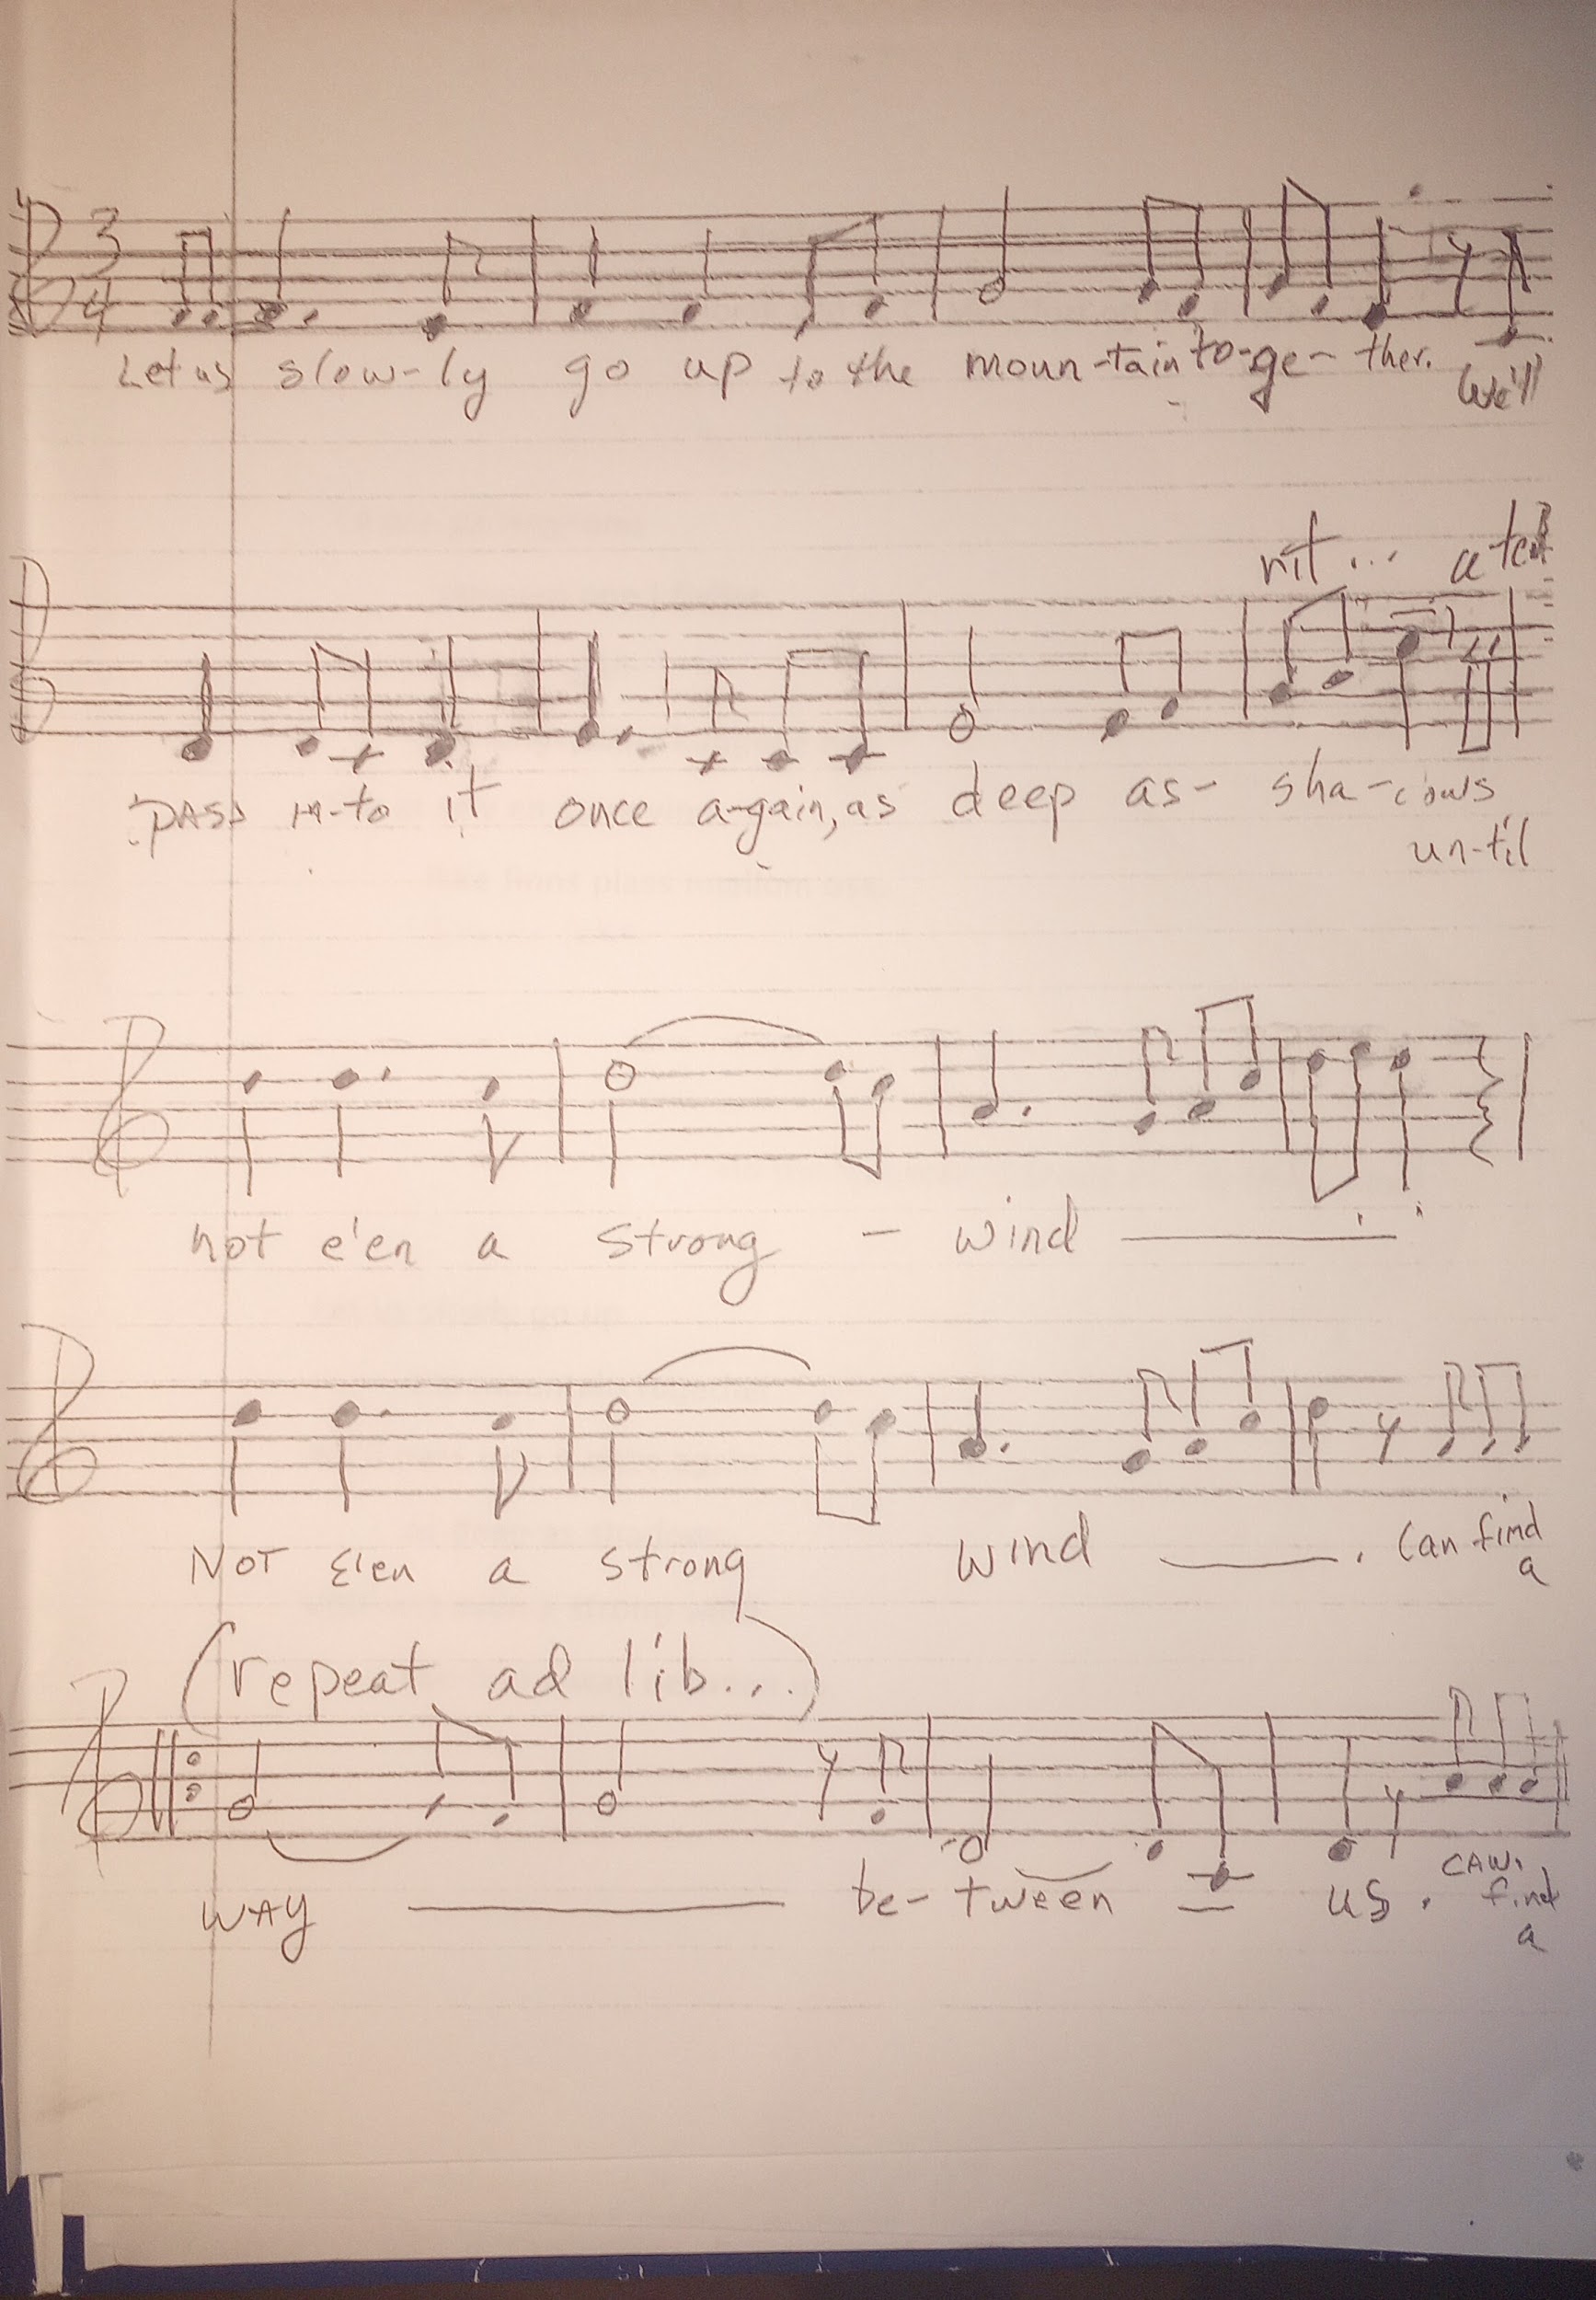 3
4
Let us slow-ly go up to the moun-tain to-ge-ther. We'll
rit... a tem
pass in-to it once a-gain, as deep as- sha-dows
un-til
not e'en a strong - wind
Not e'en a strong wind . Can find
a
(repeat ad lib...)
way be-tween us. can.
find
a